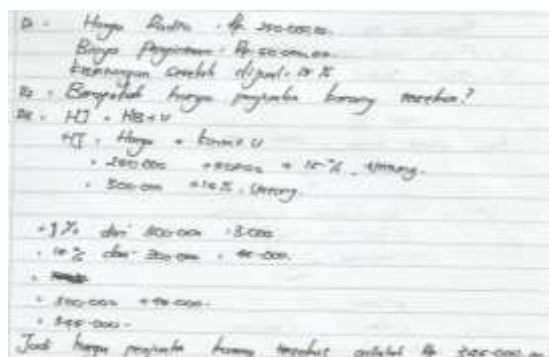 D1 = Harga Radio = Rp 250.000,00
Biaya Pengiriman = Rp 50.000,00
Keuntungan setelah dijual = 15 %
D2 = Berapakah harga penjualan barang tersebut?
D3 = HJ = HB + U
HJ = Harga + + U
= 250.000 + 50.000 + 15 % . Untung.
= 300.000 + 15 % . Untung
= 1 % dari 300.000 = 3.000
= 15 % dari 300.000 = 45.000.
=
= 300.000 + 45.000.
= 345.000 -
Jadi harga penjualan barang tersebut adalah Rp 345.000,00